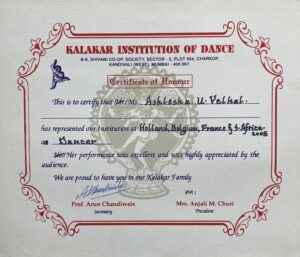 KALAKAR INSTITUTION OF DANCE
B-9, SHIVANI CO-OP. SOCIETY, SECTOR - 5, PLOT 564, CHARKOP,
KANDIVALI (WEST), MUMBAI - 400 067.
Certificate of Honour
This is to certify that Mr/Ms. Ashlesha U. Velhal.
has represented our Institution at Holland, Belgium, France & S. Africa
2005
as Dancer
His/ Her performance was excellent and was highly appreciated by the
audience.
We are proud to have you in our Kalakar Family
Prof. Arun Chandiwale
Secretary
Mrs. Anjali M. Churi
President